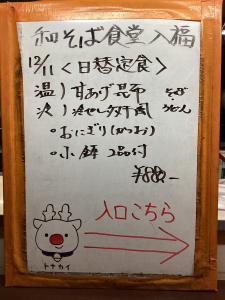 和そば食堂入福
12/11 <日替定食>
温) 甘あげ昆布 そば
冷) 冷やし 風 うどん
・おにぎり(かつお)
・小鉢 2品付
¥880-
入口こちら
トナカイ